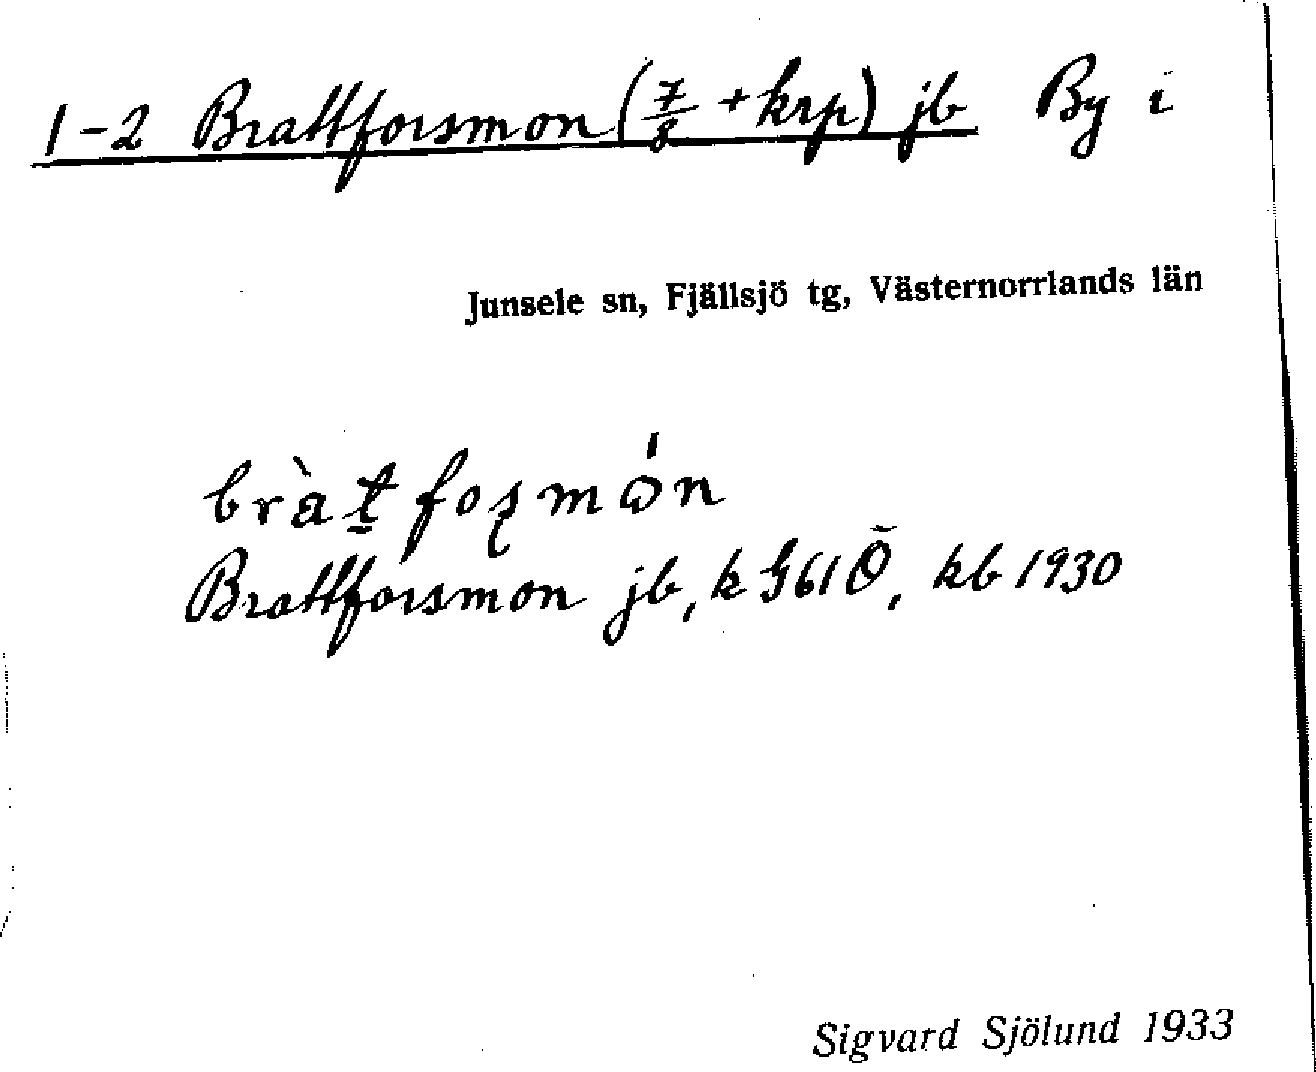 1-2 Brattforsmon (7/8 + krp) jb By i
Junsele sn, Fjällsjö tg, Västernorrlands län
Brattforsmon jb, k G61Ö, kb 1930
Sigvard Sjölund 1933